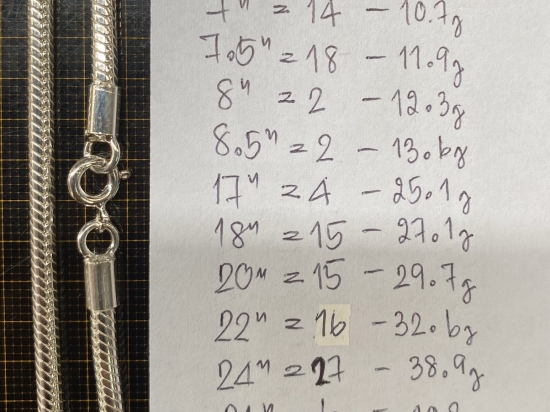 7" = 14 - 10.7g
7.5" = 18 - 11.9g
8" = 2 - 12.3g
8.5" = 2 - 13.6g
17" = 4 - 25.1g
18" = 15 - 27.1g
20" = 15 - 29.7g
22" = 16 - 32.6g
24" = 27 - 38.9g